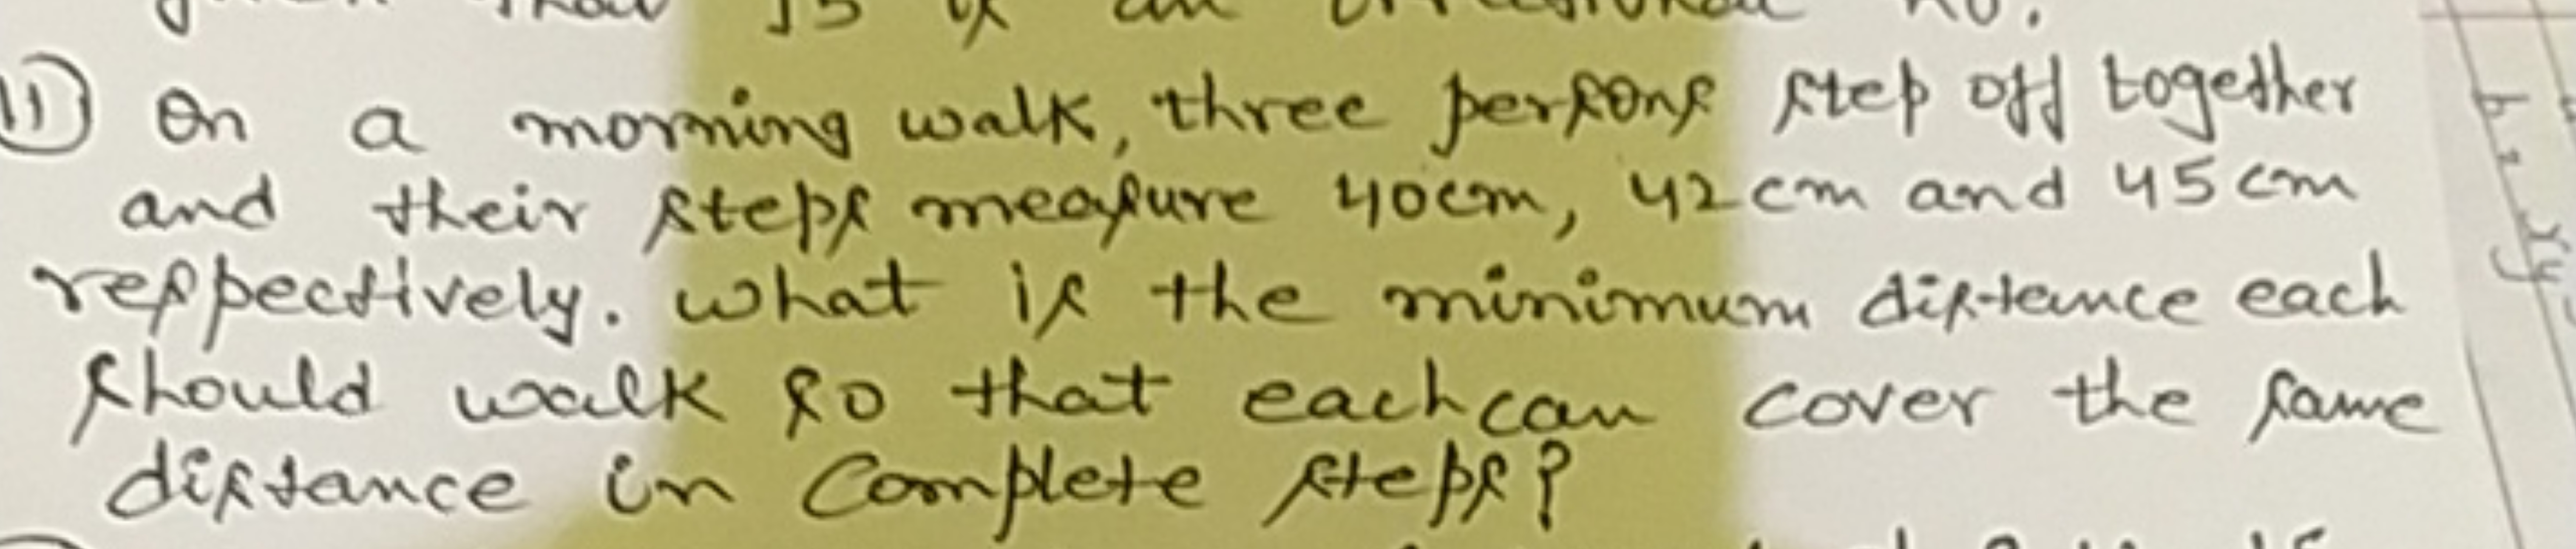 ⑪ On a morning walk, three persons step off together
and their steps measure 40cm, 42cm and 45cm
respectively. What is the minimum distance each
should walk so that each can cover the same
distance in complete steps?